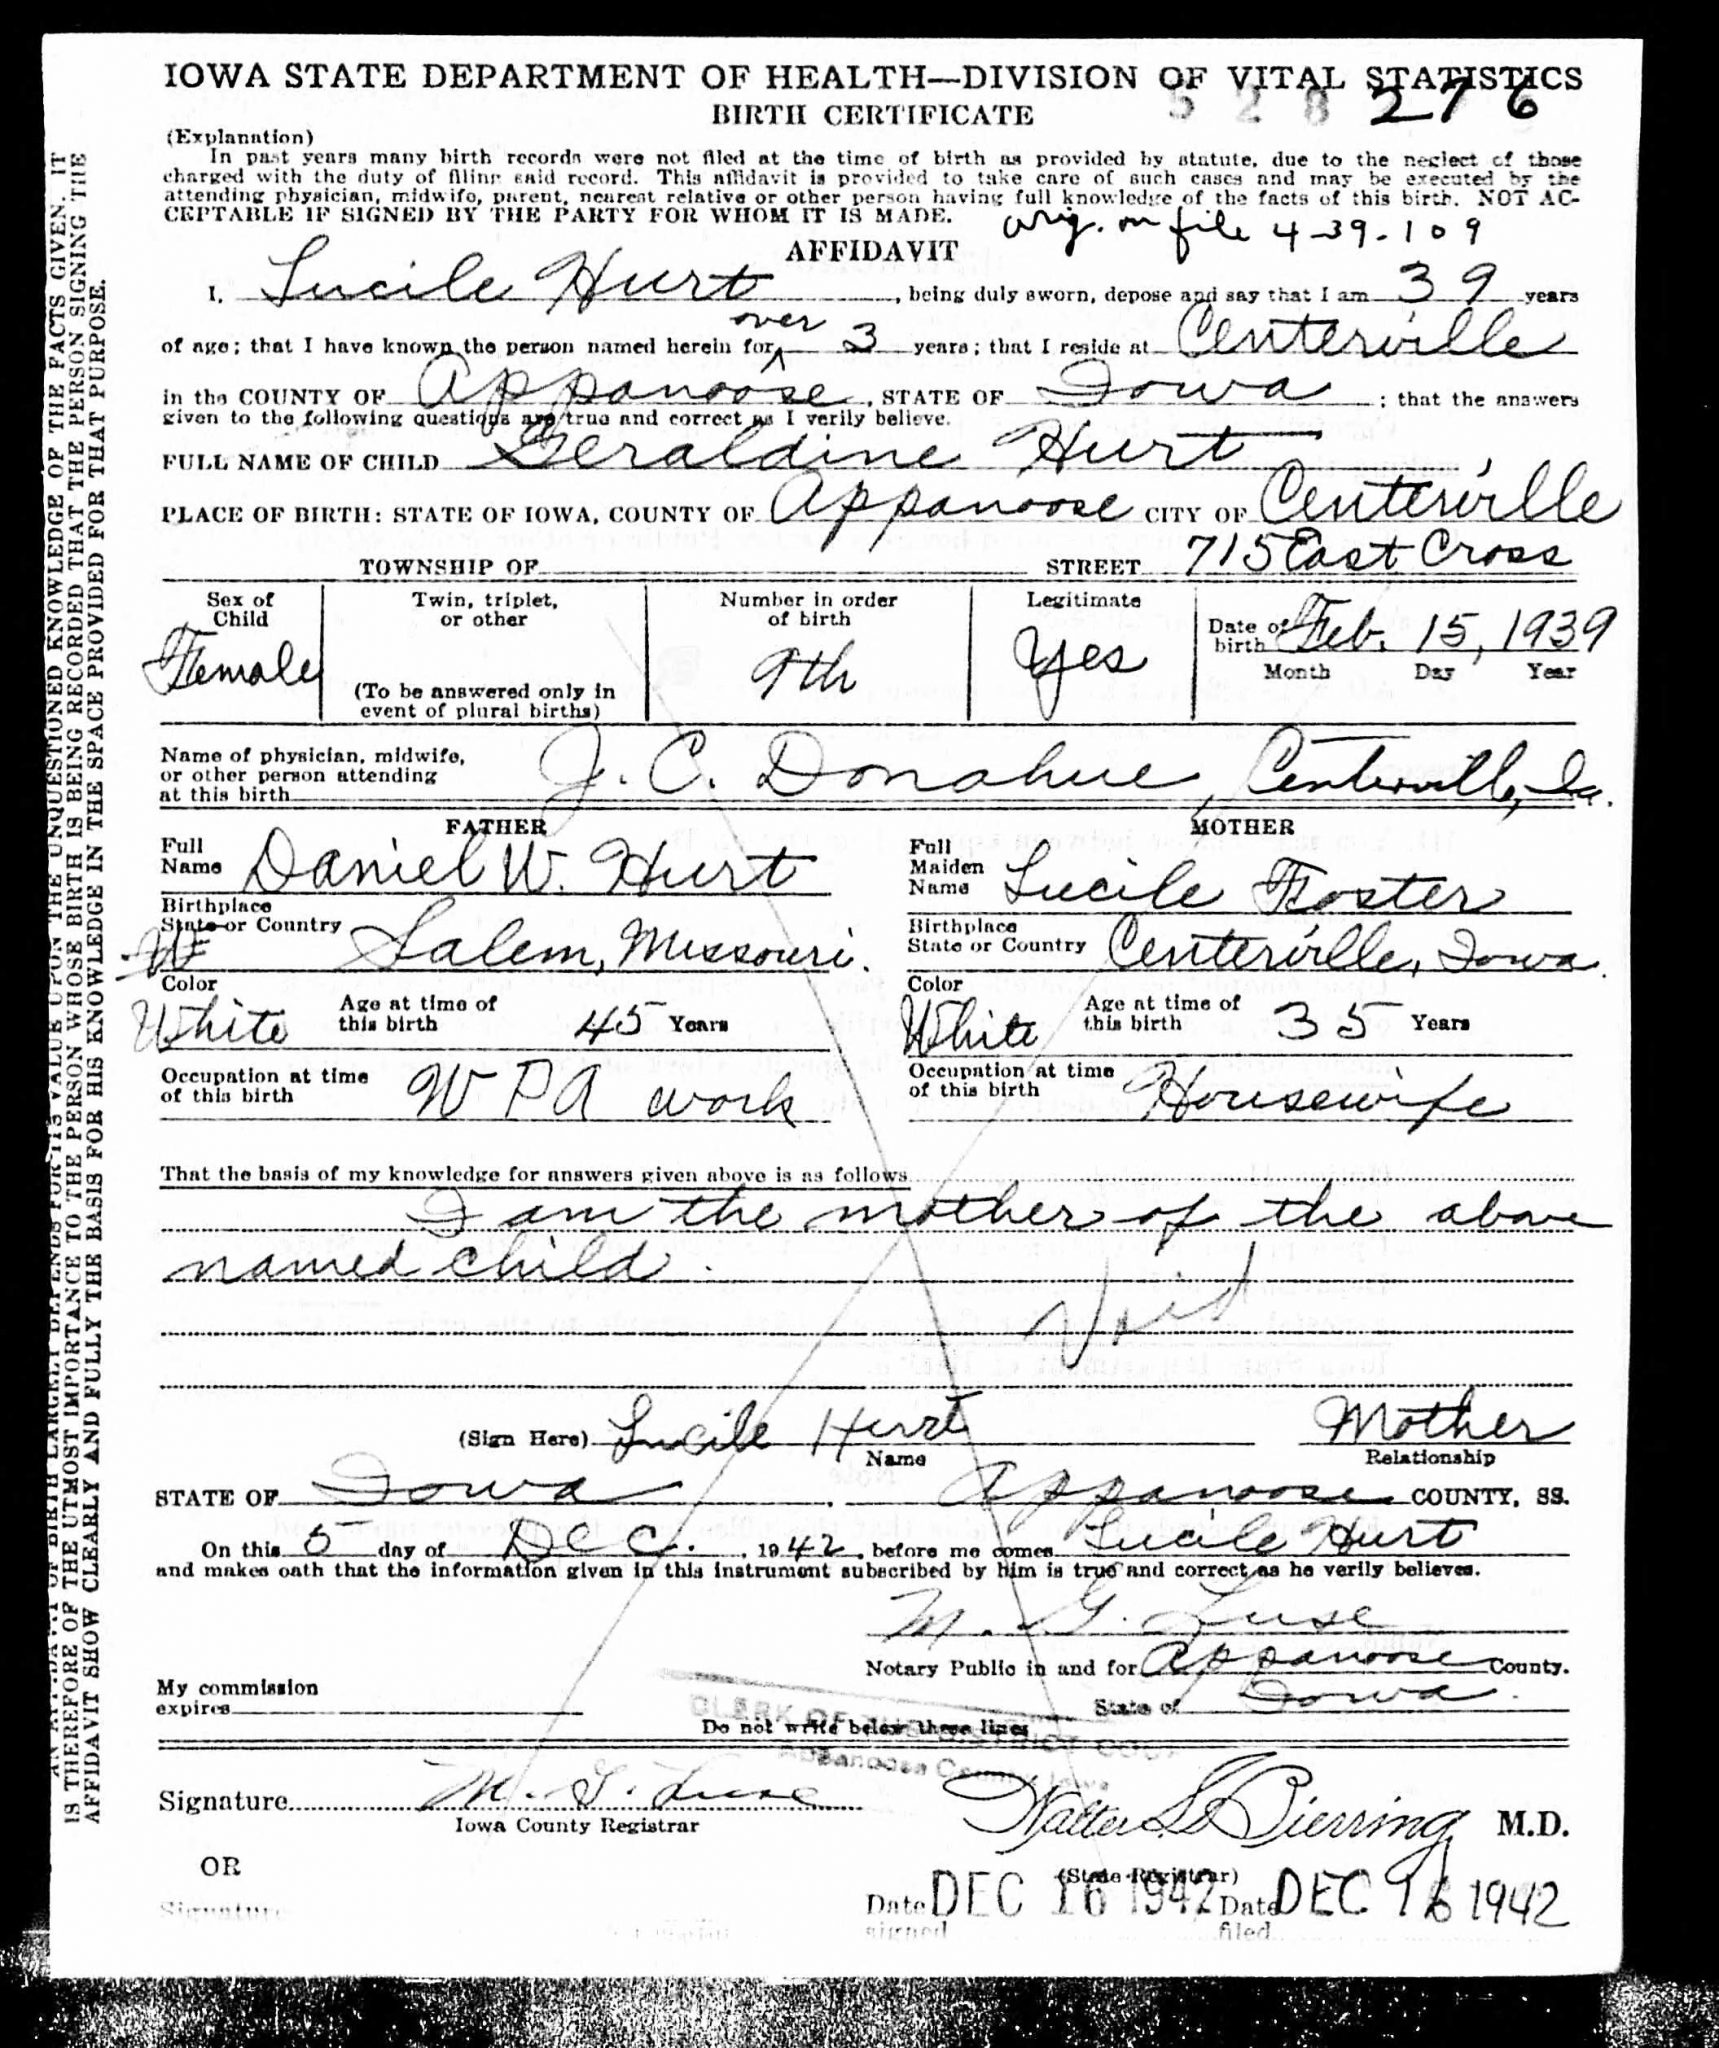 IOWA STATE DEPARTMENT OF HEALTH—DIVISION OF VITAL STATISTICS
BIRTH CERTIFICATE
5 2 8 276
(Explanation)
In past years many birth records were not filed at the time of birth as provided by statute, due to the neglect of those
charged with the duty of filing said record. This affidavit is provided to take care of such cases and may be executed by the
attending physician, midwife, parent, nearest relative or other person having full knowledge of the facts of this birth. NOT AC-
CEPTABLE IF SIGNED BY THE PARTY FOR WHOM IT IS MADE.
orig. on file 4-39-109
AFFIDAVIT
I, Lucile Hurt, being duly sworn, depose and say that I am 39 years
of age; that I have known the person named herein for over 3 years; that I reside at Centerville
in the COUNTY OF Appanoose, STATE OF Iowa; that the answers
given to the following questions are true and correct as I verily believe.
FULL NAME OF CHILD Geraldine Hurt,
PLACE OF BIRTH: STATE OF IOWA, COUNTY OF Appanoose CITY OF Centerville
TOWNSHIP OF STREET 715 East Cross
Sex of Child Female
Twin, triplet, or other
(To be answered only in event of plural births)
Number in order of birth 9th
Legitimate Yes
Date of birth Feb. 15, 1939
Month Day Year
Name of physician, midwife,
or other person attending
at this birth J. C. Donahue, Centerville, Ia.
FATHER
Full Name Daniel W. Hurt
Birthplace
State or Country Salem, Missouri.
W
Color White Age at time of this birth 45 Years
Occupation at time of this birth WPA work
MOTHER
Full Maiden Name Lucile Foster
Birthplace
State or Country Centerville, Iowa.
Color White Age at time of this birth 35 Years
Occupation at time of this birth Housewife
That the basis of my knowledge for answers given above is as follows
I am the mother of the above
named child.
Void
(Sign Here) Lucile Hurt Mother
Name Relationship
STATE OF Iowa, Appanoose COUNTY, SS.
On this 5 day of Dec., 1942, before me comes Lucile Hurt
and makes oath that the information given in this instrument subscribed by him is true and correct as he verily believes.
M. G. Luse
Notary Public in and for Appanoose County.
My commission expires State of Iowa.
CLERK OF THE DISTRICT COURT
Appanoose County, Iowa
Do not write below these lines
Signature M. G. Luse
Iowa County Registrar
Walter L. Bierring M.D.
(State Registrar)
OR
Signature
Date signed DEC 16 1942 Date filed DEC 16 1942
IT IS THEREFORE OF THE UTMOST IMPORTANCE TO THE PERSON WHOSE BIRTH IS BEING RECORDED THAT THE PERSON SIGNING THE
AFFIDAVIT SHOW CLEARLY AND FULLY THE BASIS FOR HIS KNOWLEDGE IN THE SPACE PROVIDED FOR THAT PURPOSE.